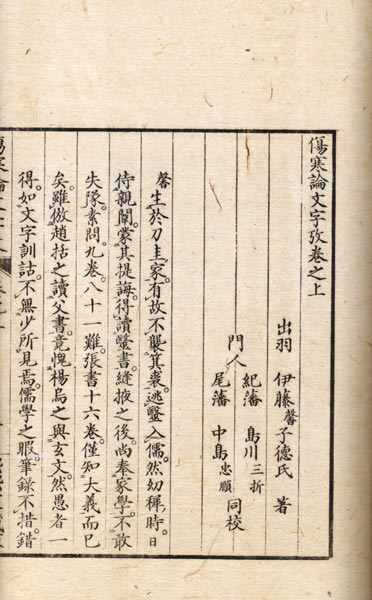 傷寒論文字攷卷之上
出羽　伊藤馨子德氏　著
門人　紀藩　島川三折
尾藩　中島忠順　同校
馨生於刀圭家。有故不襲箕裘。逃醫入儒。然幼穉時。日
侍親闈。蒙其提誨。得讀醫書。縫掖之後。尚奉家學。不敢
失隊。素問。九卷。八十一難。張書十六卷。僅知大義而已
矣。雖倣趙括之讀父書。竟愧楊烏之與玄文。然愚者一
得。如文字訓詁。不無少所見焉。儒學之暇。筆錄不措。錯